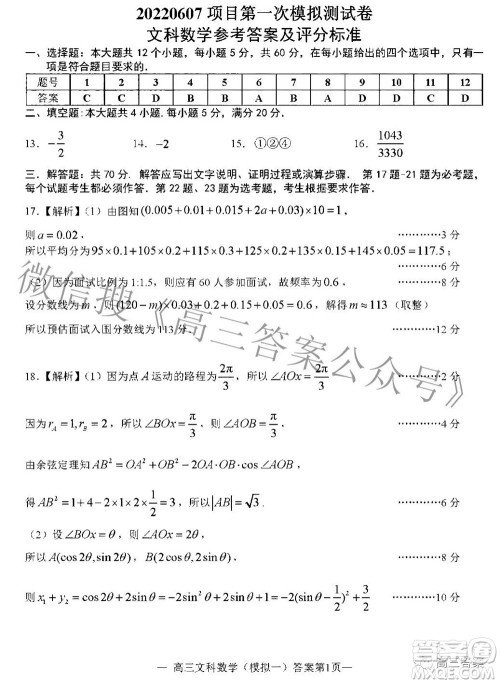 20220607 项目第一次模拟测试卷
文科数学参考答案及评分标准
一、选择题：本大题共 12 个小题，每小题 5 分，共 60 分，在每小题给出的四个选项中，只有一
项是符合题目要求的．
题号 1 2 3 4 5 6 7 8 9 10 11 12
答案 C C D D D D A D A B C D
二、填空题：本大题共 4 小题，每小题 5 分，满分 20 分．
13．-3/2 14．-2 15．①④② 16．1043/3330
三、解答题：共 70 分．解答应写出文字说明、证明过程或演算步骤．第 17 题-21 题为必考题，
每个试题考生都必须作答．第 22 题、23 题为选考题，考生根据要求作答．
17．【解析】（1）由图知(0.005+0.01+0.015+2a+0.03)×10=1，
则 a=0.02， ············3 分
所以平均分为95×0.1+105×0.2+115×0.3+125×0.2+135×0.15+145×0.05=117.5；
············6 分
（2）因为面试比例为 1:1.5，则应有 60 人参加面试，故频率为 0.6， ············8 分
设分数线为 m，则(120-m)×0.03+0.2+0.15+0.05=0.6，解得 m≈113（取整）
所以预估面试入围分数线为 113 分． ············12 分
18．【解析】（1）因为点 A 运动的路程为2π/3，所以∠AOx=2π/3， ············2 分
因为 r_A=1, r_B=2，所以∠BOx=π/3，所以∠AOB=π/3， ············4 分
由余弦定理知 AB²=OA²+OB²-2OA×OB×cos∠AOB，
得 AB²=1+4-2×1×2×1/2=3，所以|AB|=√3． ············6 分
（2）设∠BOx=θ，则∠AOx=2θ，
所以 A(cos2θ,sin2θ)，B(2cosθ,2sinθ)， ············8 分
则 x₁+y₂=cos2θ+2sinθ=-2sin²θ+2sinθ+1=-2(sinθ-1/2)²+3/2， ············10 分
—高三文科数学（模拟一）答案第1页—
微信搜《高三答案公众号》
高三答案